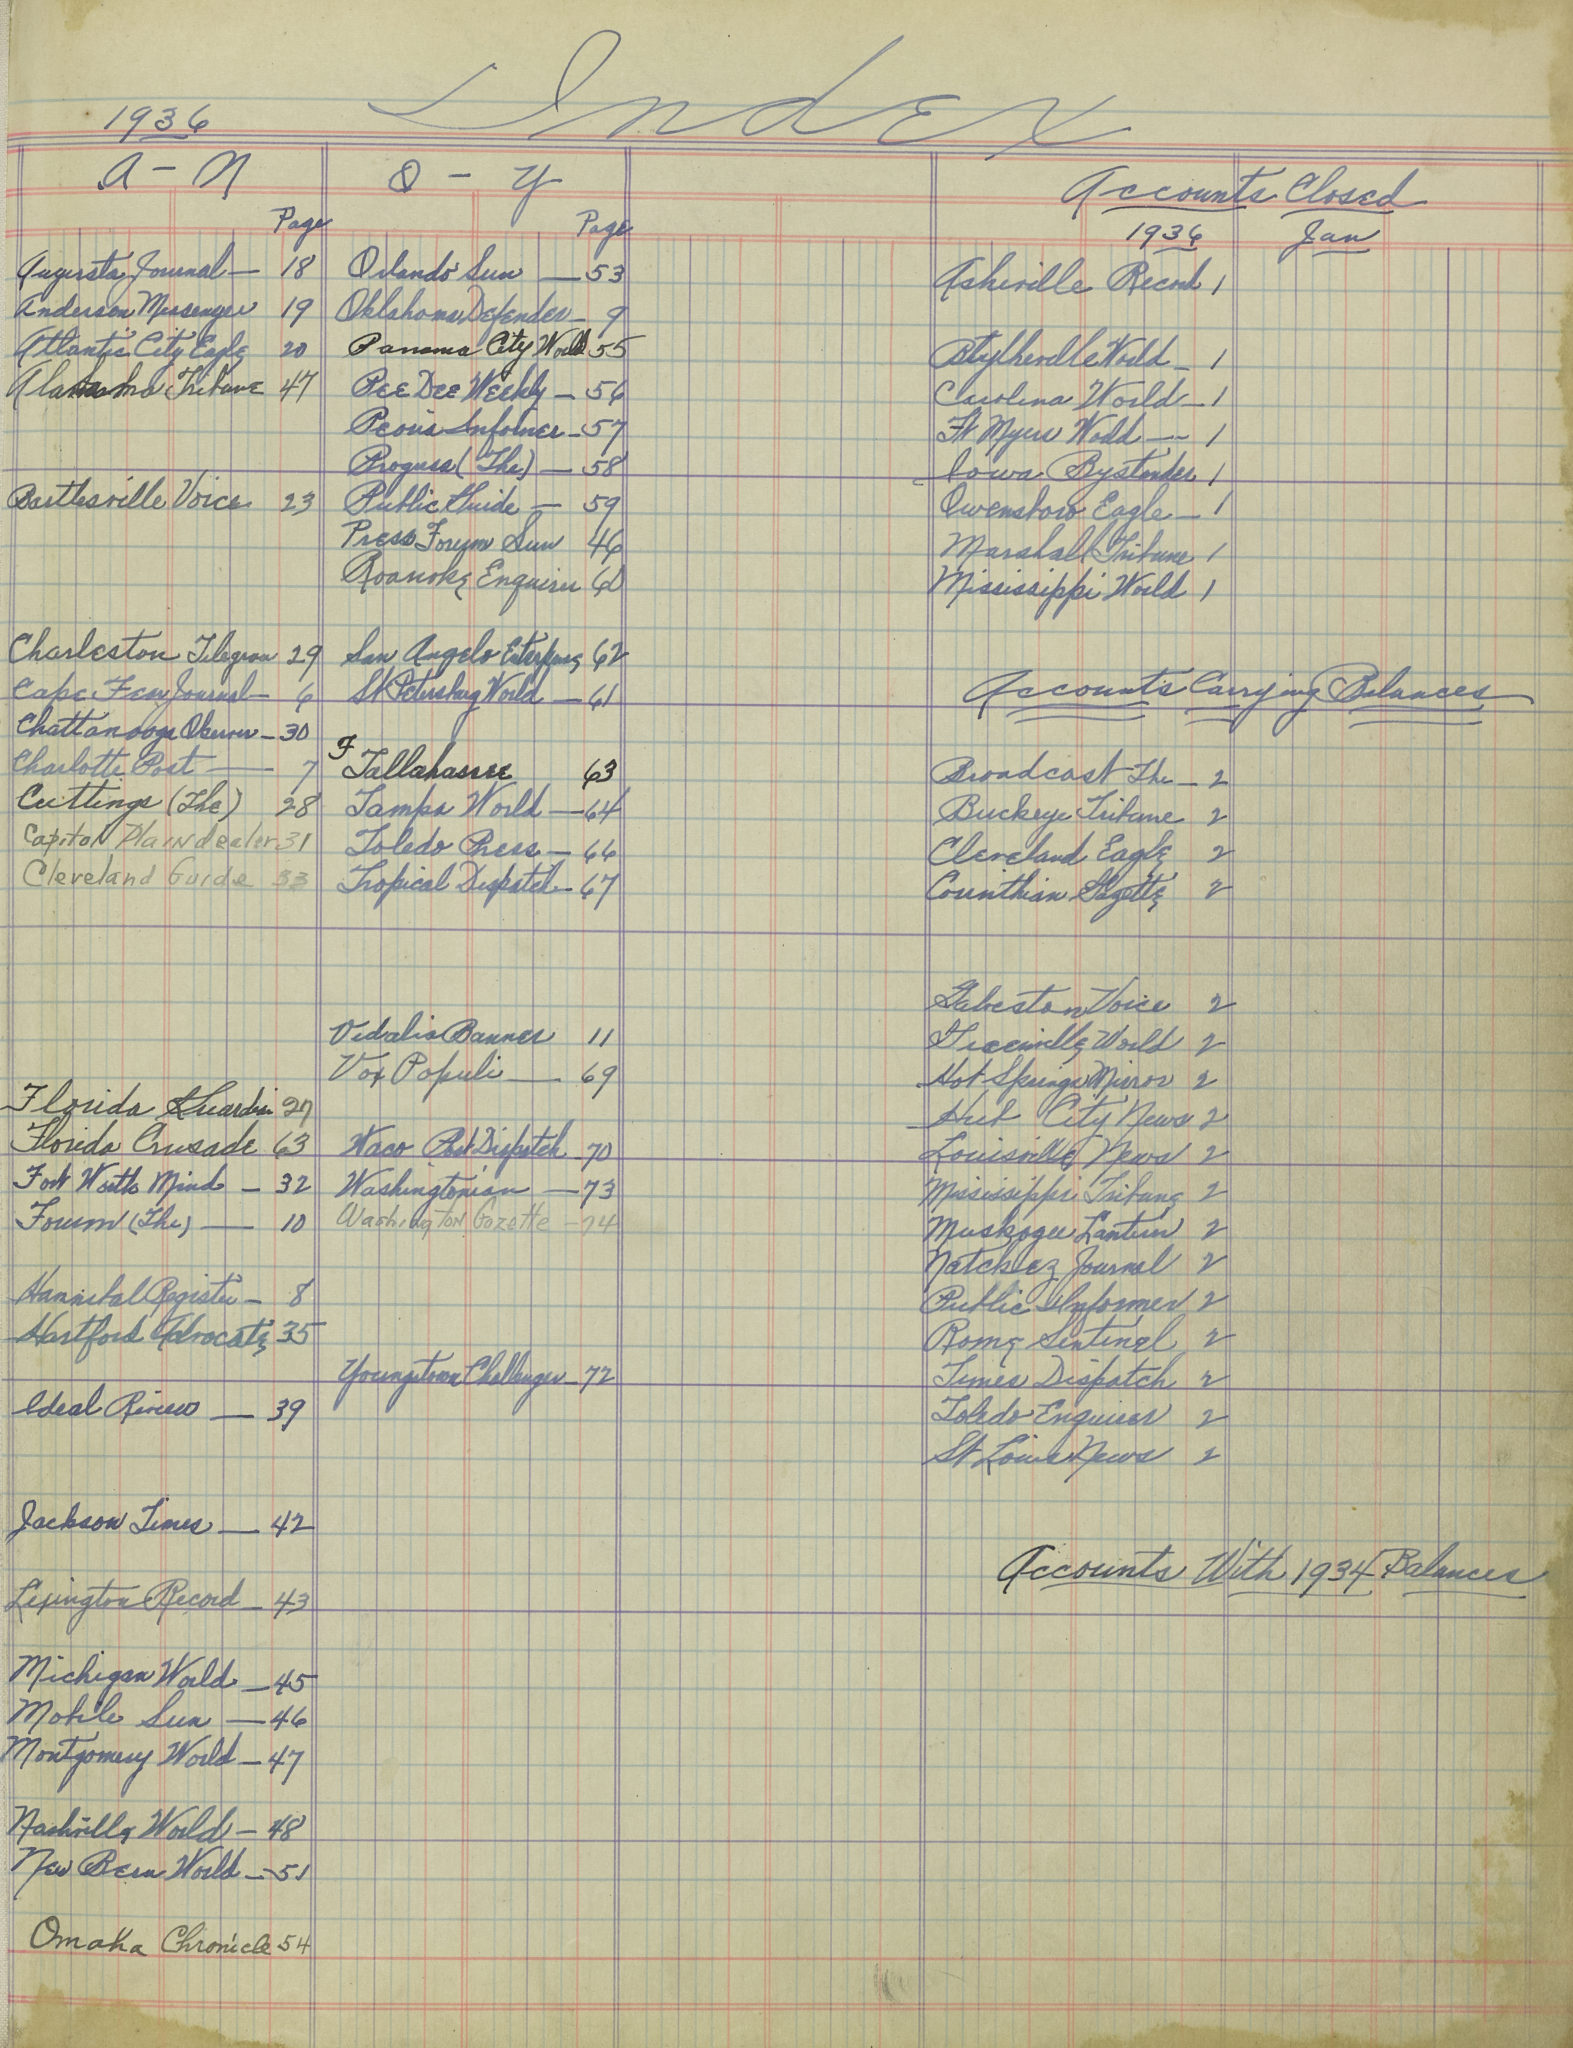 Index
1936
A - N
Page
Augusta Journal — 18
Anderson Messenger 19
Atlantic City Eagle 20
Alabama Tribune 47
Bartlesville Voice 23
Charleston Telegram 29
Cape Fear Journal — 6
Chattanooga Observer — 30
Charlotte Post — 7
Cuttings (The) 28
Capitol Plaindealer 31
Cleveland Guide 33
Florida Guardian 27
Florida Crusade 63
Fort Worth Mind — 32
Forum (The) — 10
Hannibal Register — 8
Hartford Advocate 35
Ideal Review — 39
Jackson Times — 42
Lexington Record — 43
Michigan World — 45
Mobile Sun — 46
Montgomery World — 47
Nashville World — 48
New Bern World — 51
Omaha Chronicle 54
O - Y
Page
Orlando Sun — 53
Oklahoma Defender — 9
Panama City World 55
Pee Dee Weekly — 56
Peoria Informer — 57
Progress (The) — 58
Public Guide — 59
Press Forum Sun 46
Roanoke Enquirer 60
San Angelo Enterprise 62
St Petersburg World — 61
F
Tallahassee 63
Tampa World — 64
Toledo Press — 66
Tropical Dispatch — 67
Vidalia Banner 11
Vox Populi — 69
Waco Post Dispatch — 70
Washingtonian — 73
Washington Gazette — 74
Youngstown Challenger — 72
Accounts Closed
1936 Jan
Asheville Record 1
Blytheville World — 1
Carolina World — 1
Ft Myers World — 1
Iowa Bystander 1
Owensboro Eagle — 1
Marshall Tribune 1
Mississippi World 1
Accounts Carrying Balances
Broadcast The — 2
Buckeye Tribune 2
Cleveland Eagle 2
Corinthian Gazette 2
Galveston Voice 2
Greenville World 2
Hot Springs Mirror 2
Hub City News 2
Louisville News 2
Mississippi Tribune 2
Muskogee Lantern 2
Natchez Journal 2
Public Informer 2
Rome Sentinel 2
Times Dispatch 2
Toledo Enquirer 2
St Louis News 2
Accounts With 1934 Balances